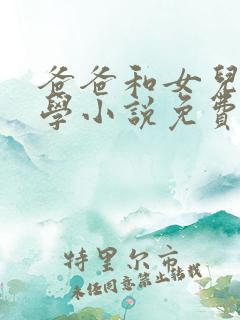 爸爸和女兒
學小說免費
特里尔市
未经同意禁止转载